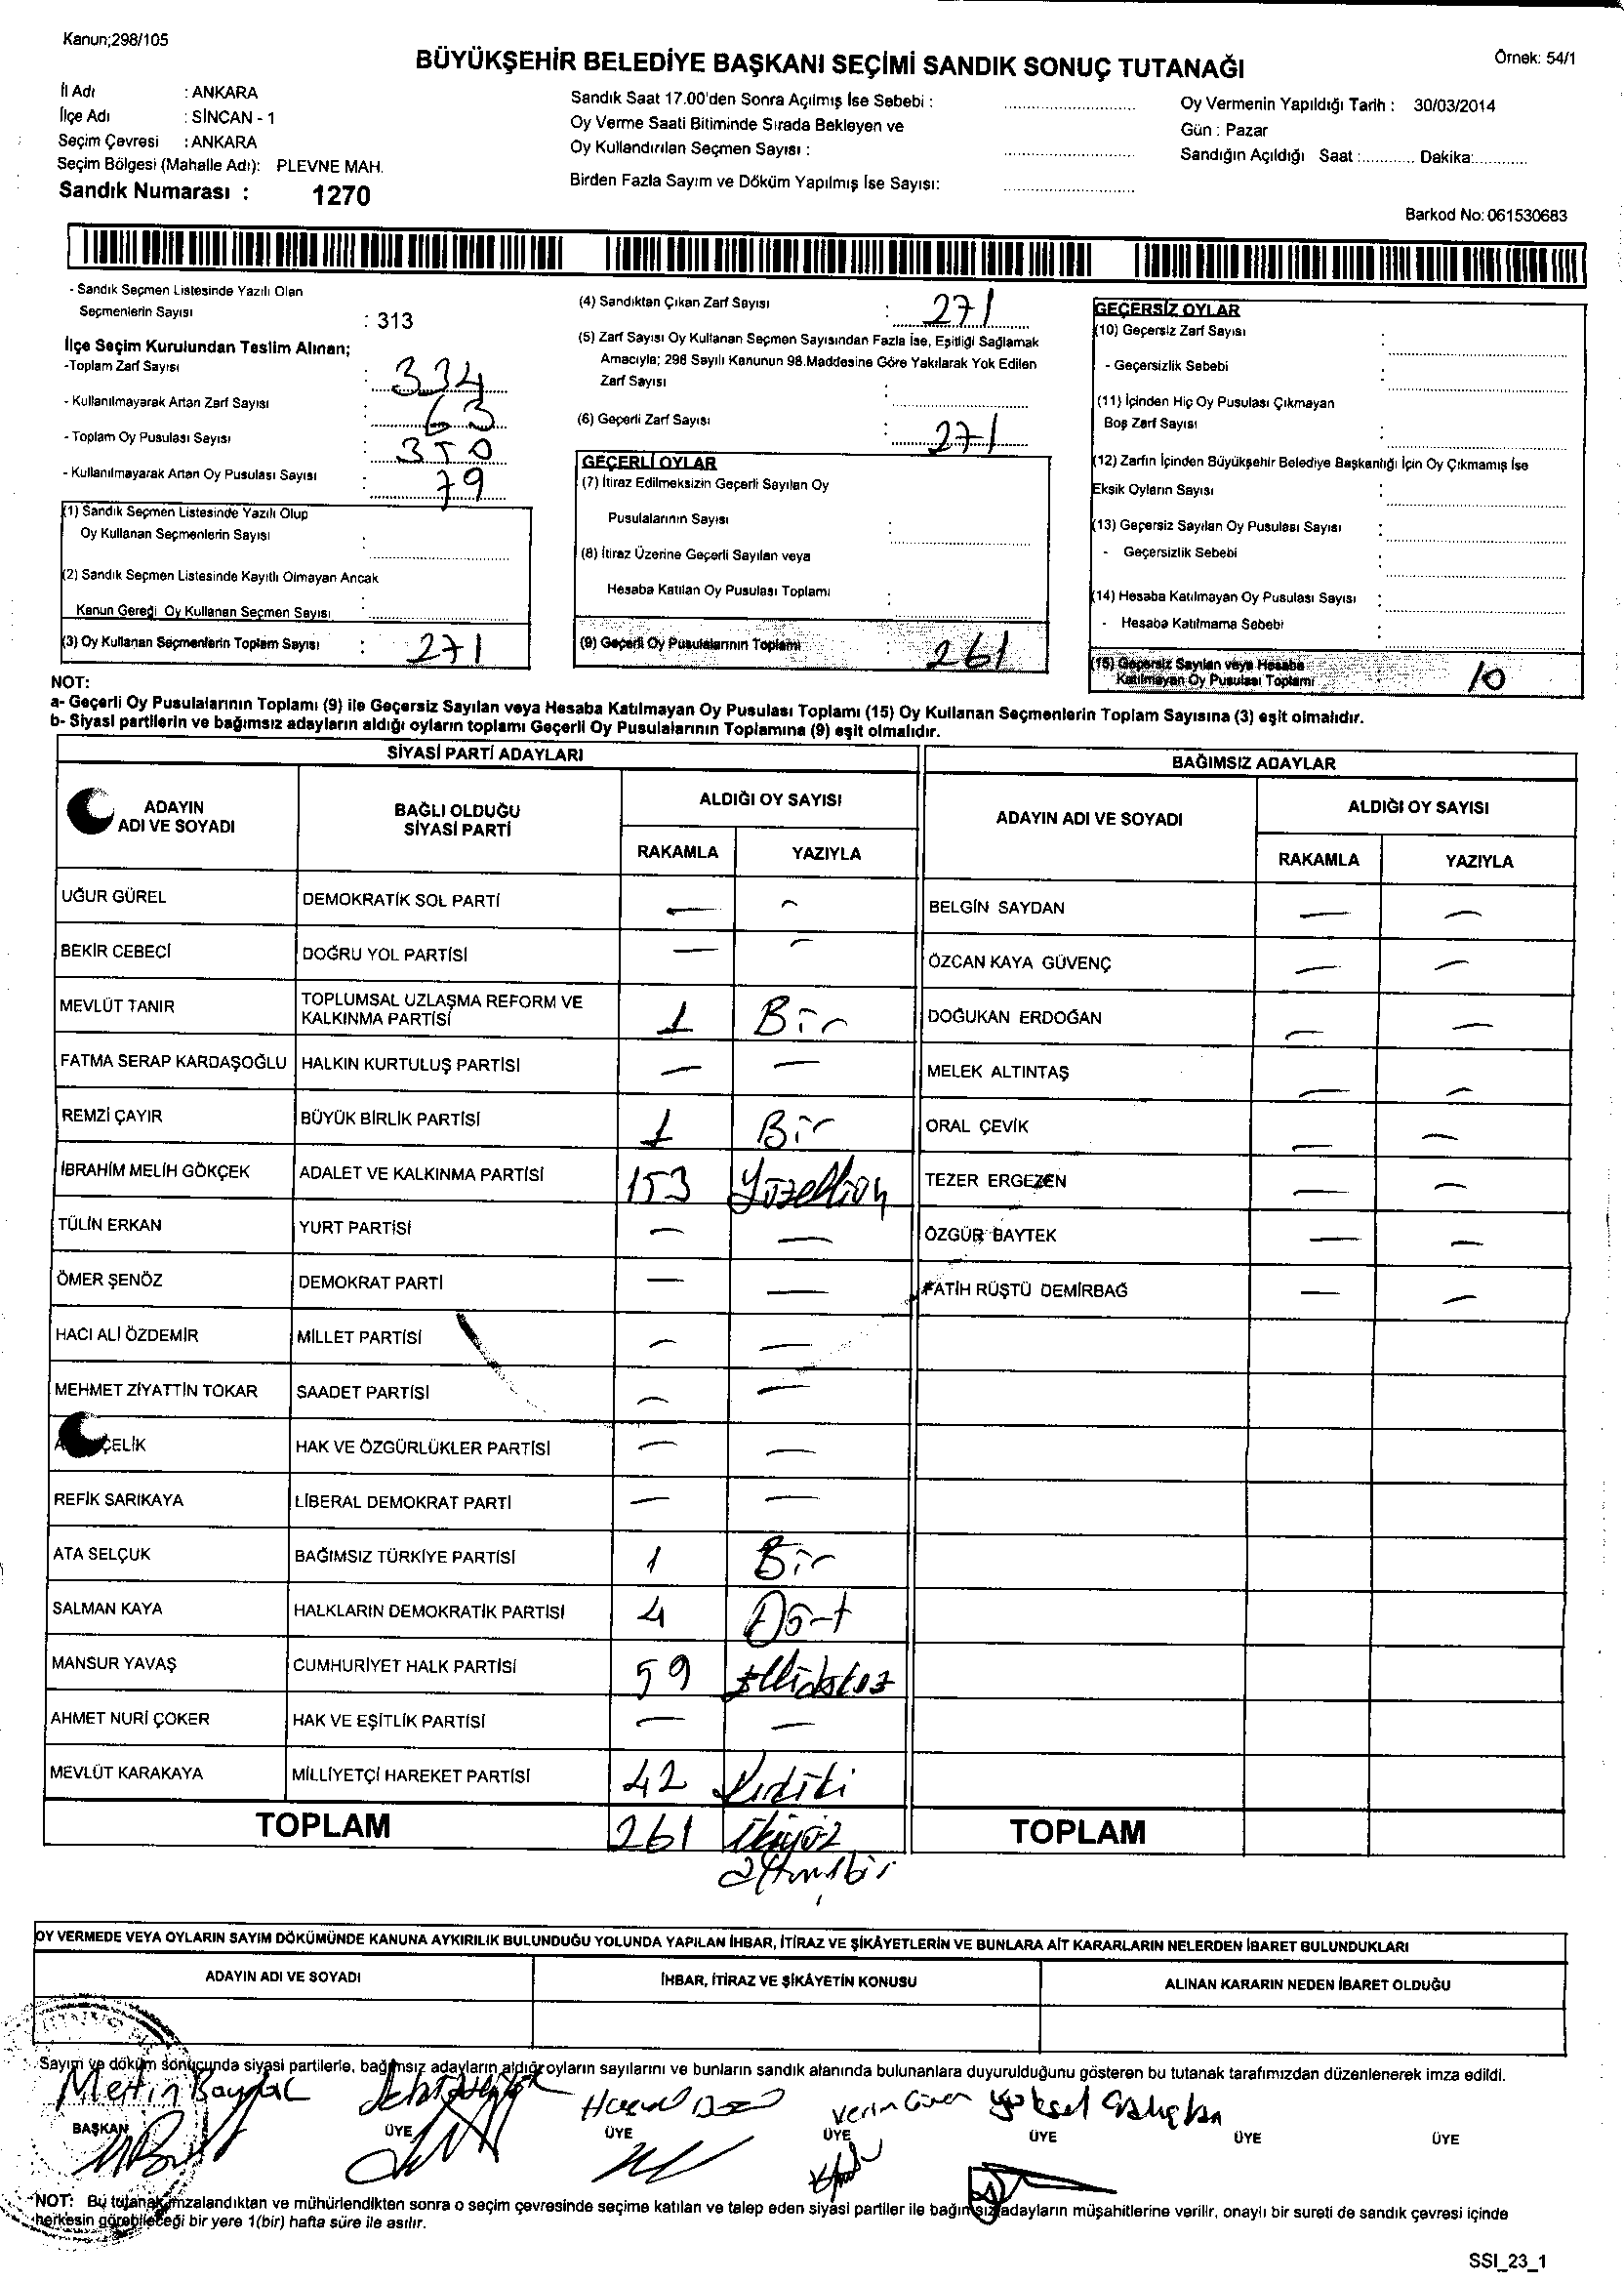 Kanun;298/105
BÜYÜKŞEHİR BELEDİYE BAŞKANI SEÇİMİ SANDIK SONUÇ TUTANAĞI
Örnek: 54/1
İl Adı : ANKARA
İlçe Adı : SİNCAN - 1
Seçim Çevresi : ANKARA
Seçim Bölgesi (Mahalle Adı): PLEVNE MAH.
Sandık Numarası : 1270
Sandık Saat 17.00'den Sonra Açılmış İse Sebebi :
Oy Verme Saati Bitiminde Sırada Bekleyen ve
Oy Kullandırılan Seçmen Sayısı :
Birden Fazla Sayım ve Döküm Yapılmış İse Sayısı:
Oy Vermenin Yapıldığı Tarih : 30/03/2014
Gün : Pazar
Sandığın Açıldığı Saat :............ Dakika:............
Barkod No: 061530683
- Sandık Seçmen Listesinde Yazılı Olan
Seçmenlerin Sayısı : 313
İlçe Seçim Kurulundan Teslim Alınan;
-Toplam Zarf Sayısı : 334
- Kullanılmayarak Artan Zarf Sayısı : 63
- Toplam Oy Pusulası Sayısı : 350
- Kullanılmayarak Artan Oy Pusulası Sayısı : 79
(1) Sandık Seçmen Listesinde Yazılı Olup
Oy Kullanan Seçmenlerin Sayısı :
(2) Sandık Seçmen Listesinde Kayıtlı Olmayan Ancak
Kanun Gereği Oy Kullanan Seçmen Sayısı :
(3) Oy Kullanan Seçmenlerin Toplam Sayısı : 271
(4) Sandıktan Çıkan Zarf Sayısı : 271
(5) Zarf Sayısı Oy Kullanan Seçmen Sayısından Fazla İse, Eşitliği Sağlamak
Amacıyla; 298 Sayılı Kanunun 98.Maddesine Göre Yakılarak Yok Edilen
Zarf Sayısı :
(6) Geçerli Zarf Sayısı : 271
GEÇERLİ OYLAR
(7) İtiraz Edilmeksizin Geçerli Sayılan Oy
Pusulalarının Sayısı :
(8) İtiraz Üzerine Geçerli Sayılan veya
Hesaba Katılan Oy Pusulası Toplamı :
(9) Geçerli Oy Pusulalarının Toplamı : 261
GEÇERSİZ OYLAR
(10) Geçersiz Zarf Sayısı :
- Geçersizlik Sebebi :
(11) İçinden Hiç Oy Pusulası Çıkmayan
Boş Zarf Sayısı :
(12) Zarfın İçinden Büyükşehir Belediye Başkanlığı İçin Oy Çıkmamış İse
Eksik Oyların Sayısı :
(13) Geçersiz Sayılan Oy Pusulası Sayısı :
- Geçersizlik Sebebi :
(14) Hesaba Katılmayan Oy Pusulası Sayısı :
- Hesaba Katılmama Sebebi :
(15) Geçersiz Sayılan veya Hesaba
Katılmayan Oy Pusulası Toplamı : 10
NOT:
a- Geçerli Oy Pusulalarının Toplamı (9) ile Geçersiz Sayılan veya Hesaba Katılmayan Oy Pusulası Toplamı (15) Oy Kullanan Seçmenlerin Toplam Sayısına (3) eşit olmalıdır.
b- Siyasi partilerin ve bağımsız adayların aldığı oyların toplamı Geçerli Oy Pusulalarının Toplamına (9) eşit olmalıdır.
SİYASİ PARTİ ADAYLARI
ADAYIN ADI VE SOYADI BAĞLI OLDUĞU SİYASİ PARTİ ALDIĞI OY SAYISI
RAKAMLA YAZIYLA
UĞUR GÜREL DEMOKRATİK SOL PARTİ — —
BEKİR CEBECİ DOĞRU YOL PARTİSİ — —
MEVLÜT TANIR TOPLUMSAL UZLAŞMA REFORM VE KALKINMA PARTİSİ 1 Bir
FATMA SERAP KARDAŞOĞLU HALKIN KURTULUŞ PARTİSİ — —
REMZİ ÇAYIR BÜYÜK BİRLİK PARTİSİ 1 Bir
İBRAHİM MELİH GÖKÇEK ADALET VE KALKINMA PARTİSİ 153 Yüzelliüç
TÜLİN ERKAN YURT PARTİSİ — —
ÖMER ŞENÖZ DEMOKRAT PARTİ — —
HACI ALİ ÖZDEMİR MİLLET PARTİSİ — —
MEHMET ZİYATTİN TOKAR SAADET PARTİSİ — —
ÇELİK HAK VE ÖZGÜRLÜKLER PARTİSİ — —
REFİK SARIKAYA LİBERAL DEMOKRAT PARTİ — —
ATA SELÇUK BAĞIMSIZ TÜRKİYE PARTİSİ 1 Bir
SALMAN KAYA HALKLARIN DEMOKRATİK PARTİSİ 4 Dört
MANSUR YAVAŞ CUMHURİYET HALK PARTİSİ 59 Ellidokuz
AHMET NURİ ÇOKER HAK VE EŞİTLİK PARTİSİ — —
MEVLÜT KARAKAYA MİLLİYETÇİ HAREKET PARTİSİ 42 Kırkiki
TOPLAM 261 İkiyüz
altmışbir
BAĞIMSIZ ADAYLAR
ADAYIN ADI VE SOYADI ALDIĞI OY SAYISI
RAKAMLA YAZIYLA
BELGİN SAYDAN — —
ÖZCAN KAYA GÜVENÇ — —
DOĞUKAN ERDOĞAN — —
MELEK ALTINTAŞ — —
ORAL ÇEVİK — —
TEZER ERGEZEN — —
ÖZGÜR BAYTEK — —
FATİH RÜŞTÜ DEMİRBAĞ — —
TOPLAM
OY VERMEDE VEYA OYLARIN SAYIM DÖKÜMÜNDE KANUNA AYKIRILIK BULUNDUĞU YOLUNDA YAPILAN İHBAR, İTİRAZ VE ŞİKÂYETLERİN VE BUNLARA AİT KARARLARIN NELERDEN İBARET BULUNDUKLARI
ADAYIN ADI VE SOYADI İHBAR, İTİRAZ VE ŞİKÂYETİN KONUSU ALINAN KARARIN NEDEN İBARET OLDUĞU
Sayım ve döküm sonucunda siyasi partilerle, bağımsız adayların aldığı oyların sayılarını ve bunların sandık alanında bulunanlara duyurulduğunu gösteren bu tutanak tarafımızdan düzenlenerek imza edildi.
Metin Yüksel
BAŞKAN ÜYE ÜYE ÜYE ÜYE ÜYE ÜYE
NOT: Bu tutanak imzalandıktan ve mühürlendikten sonra o seçim çevresinde seçime katılan ve talep eden siyasi partiler ile bağımsız adayların müşahitlerine verilir, onaylı bir sureti de sandık çevresi içinde
herkesin görebileceği bir yere 1(bir) hafta süre ile asılır.
SSI_23_1